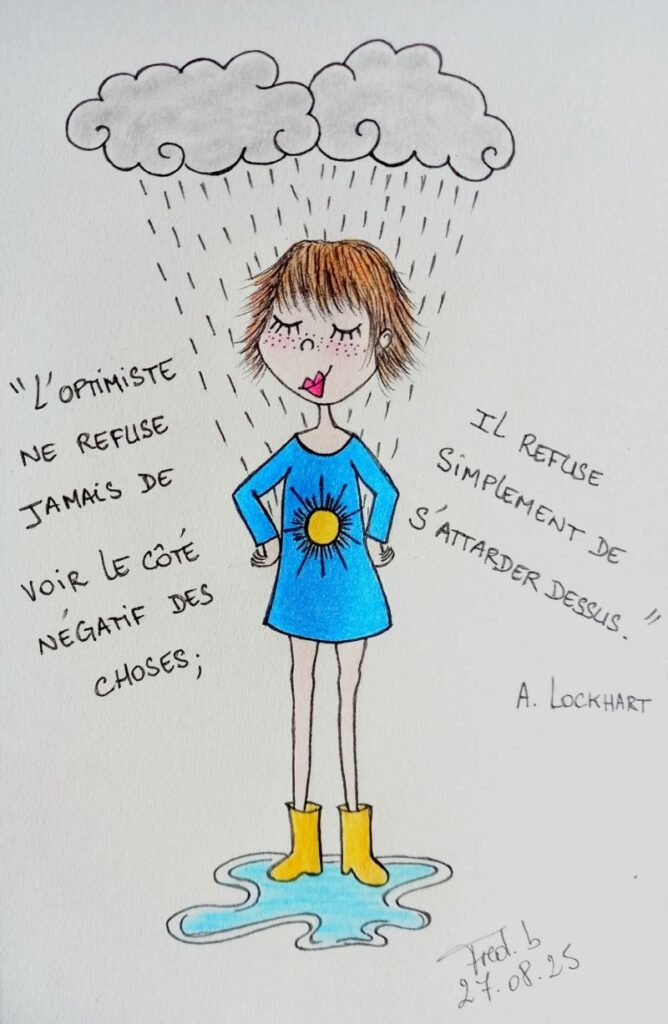 "L'OPTIMISTE
NE REFUSE
JAMAIS DE
VOIR LE CÔTÉ
NÉGATIF DES
CHOSES;
IL REFUSE
SIMPLEMENT DE
S'ATTARDER DESSUS."
A. LOCKHART
Fred. b
27.08.25